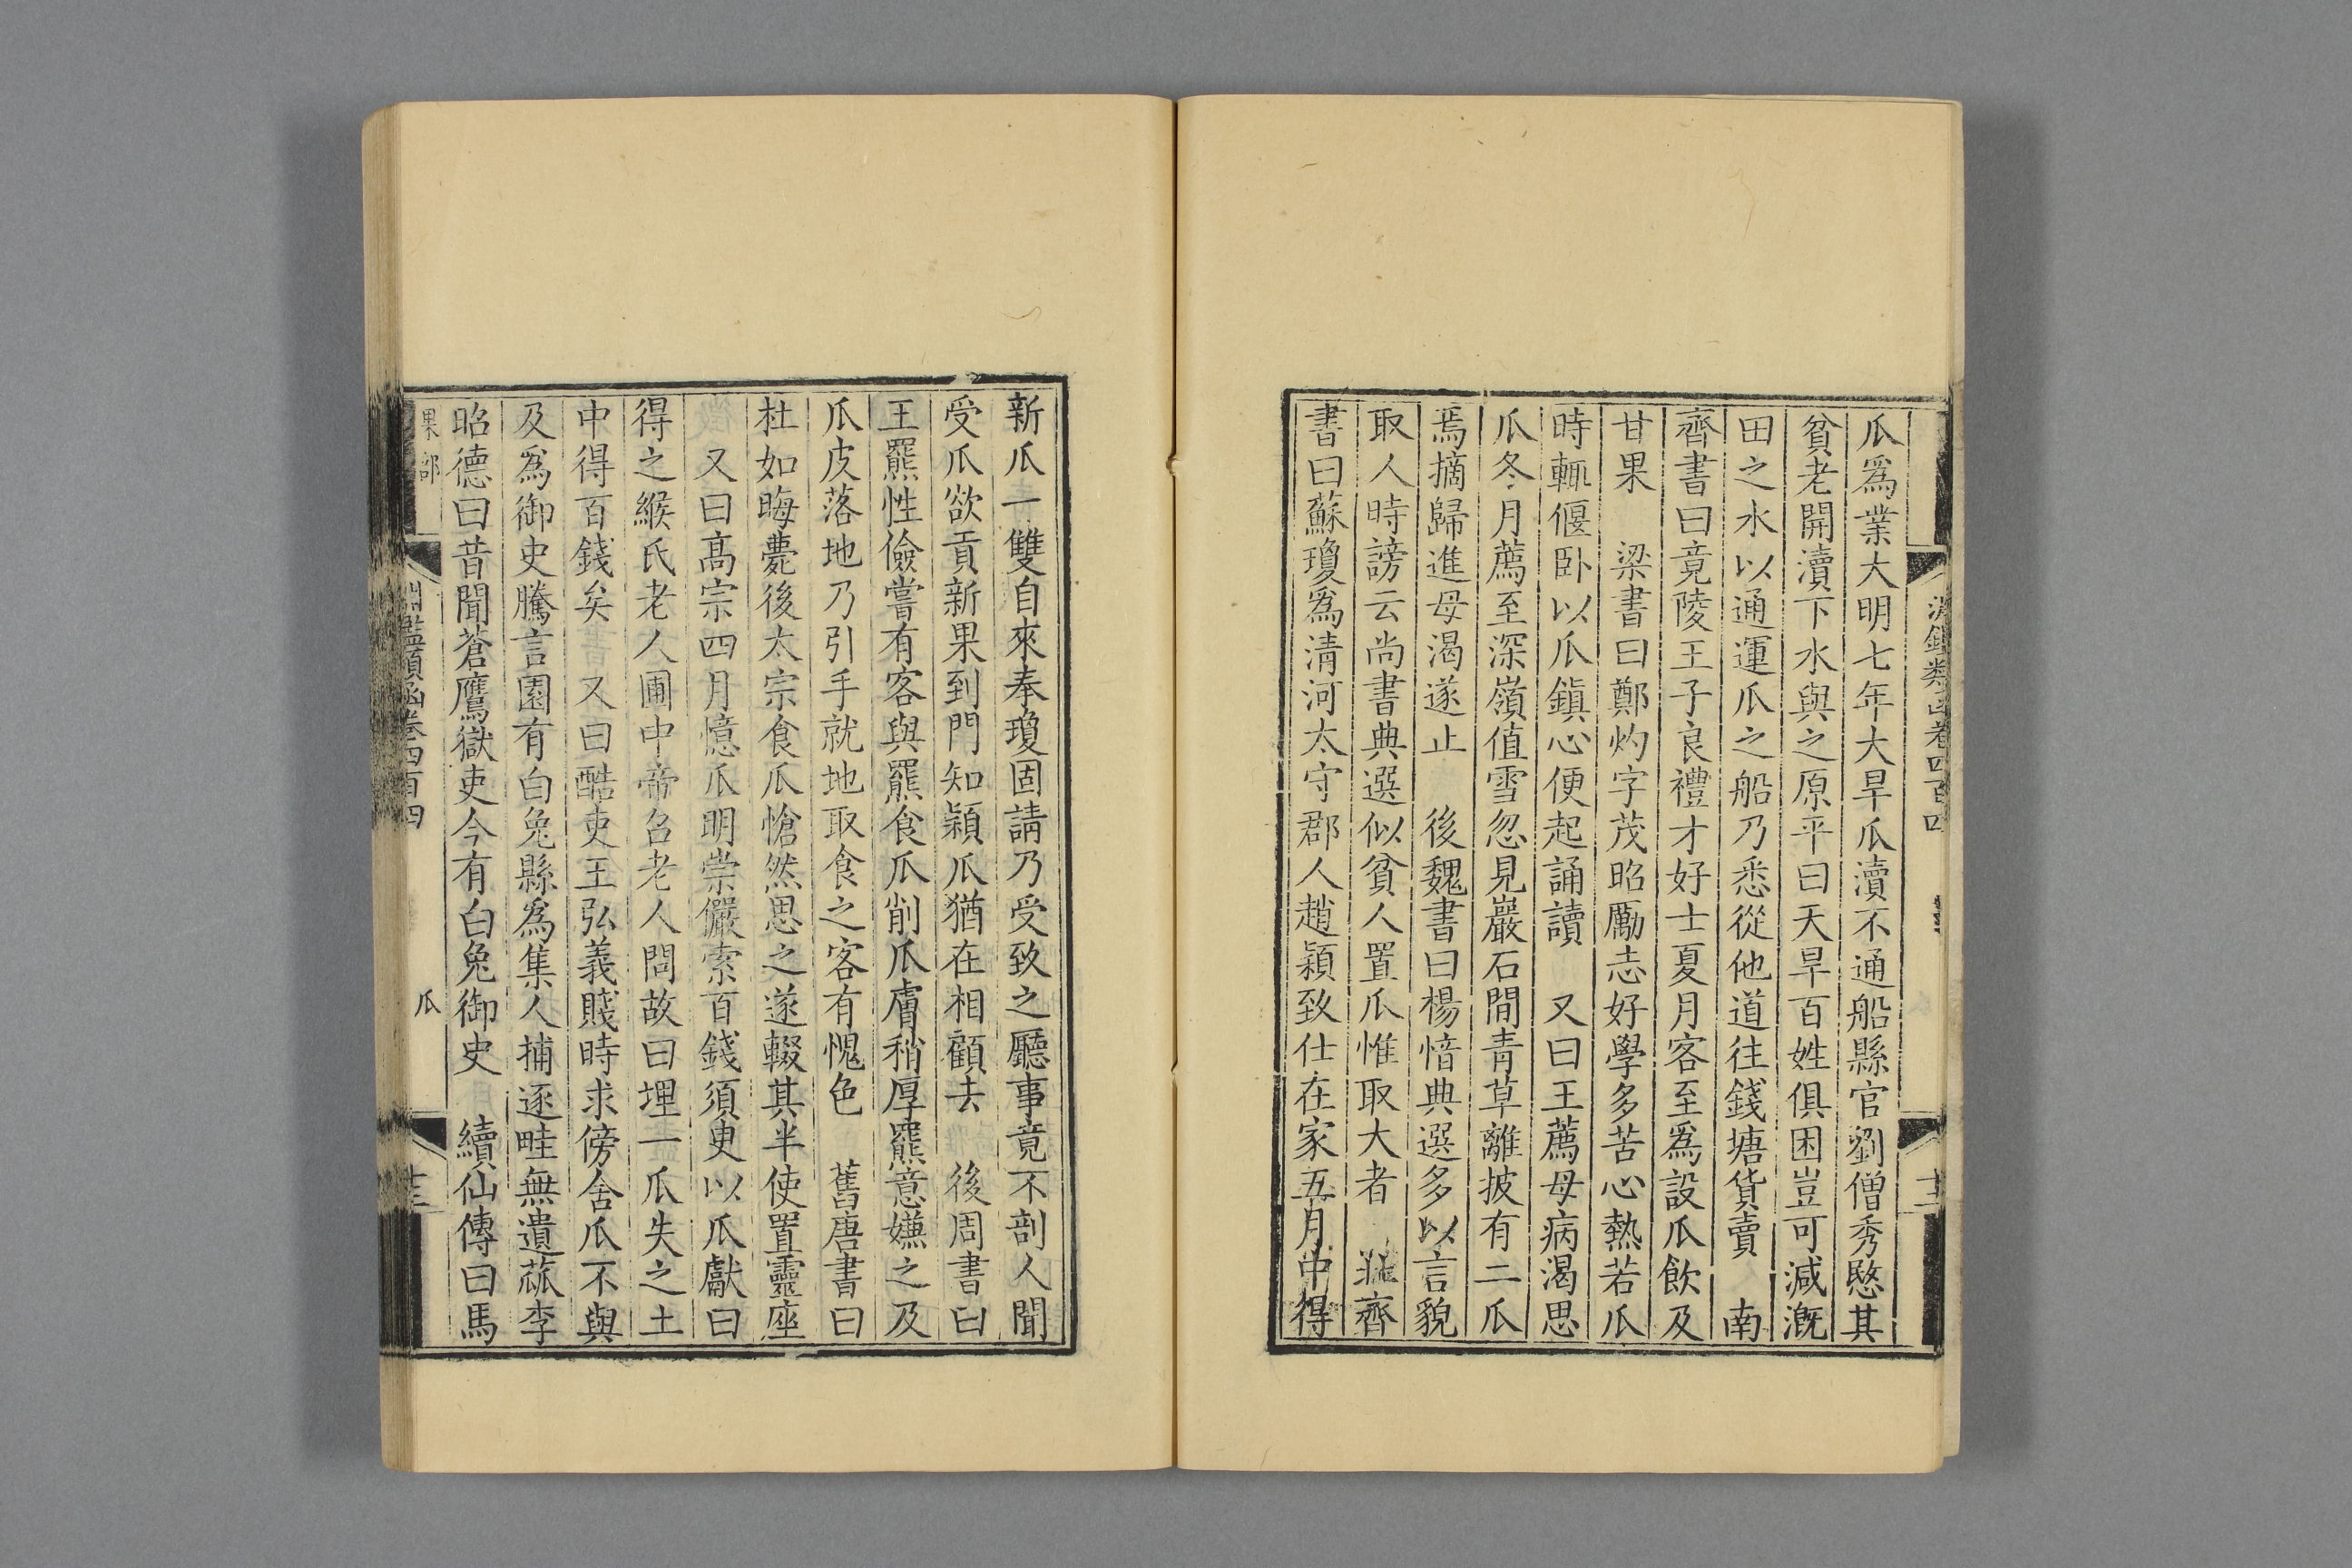 瓜爲業大明七年大旱瓜瀆不通船縣官劉僧秀愍其
貧老開瀆下水與之原平曰天旱百姓俱困豈可減溉
田之水以通運瓜之船乃悉從他道往錢塘貨賣　南
齊書曰竟陵王子良禮才好士夏月客至爲設瓜飲及
甘果　梁書曰鄭灼字茂昭勵志好學多苦心熱若瓜
時輒偃卧以瓜鎮心便起誦讀　又曰王薦母病渴思
瓜冬月薦至深嶺值雪忽見巖石間青草離披有二瓜
焉摘歸進母渴遂止　後魏書曰楊愔典選多以言貌
取人時謗云尚書典選似貧人置瓜惟取大者　北齊
書曰蘇瓊爲清河太守郡人趙潁致仕在家五月中得
新瓜一雙自來奉瓊固請乃受致之廳事竟不剖人聞
受瓜欲貢新果到門知潁瓜猶在相顧去　後周書曰
王羆性儉嘗有客與羆食瓜削瓜膚稍厚羆意嫌之及
瓜皮落地乃引手就地取食之客有愧色　舊唐書曰
杜如晦薨後太宗食瓜愴然思之遂輟其半使置靈座
又曰高宗四月憶瓜明崇儼索百錢須臾以瓜獻曰
得之緱氏老人圃中帝召老人問故曰埋一瓜失之土
中得百錢矣　又曰酷吏王弘義賤時求傍舍瓜不與
及爲御史騰言園有白兔縣爲集人捕逐畦無遺蓏李
昭德曰昔聞蒼鷹獄吏今有白兔御史　續仙傳曰馬
果部　淵鑑類函卷四百四　瓜　十三